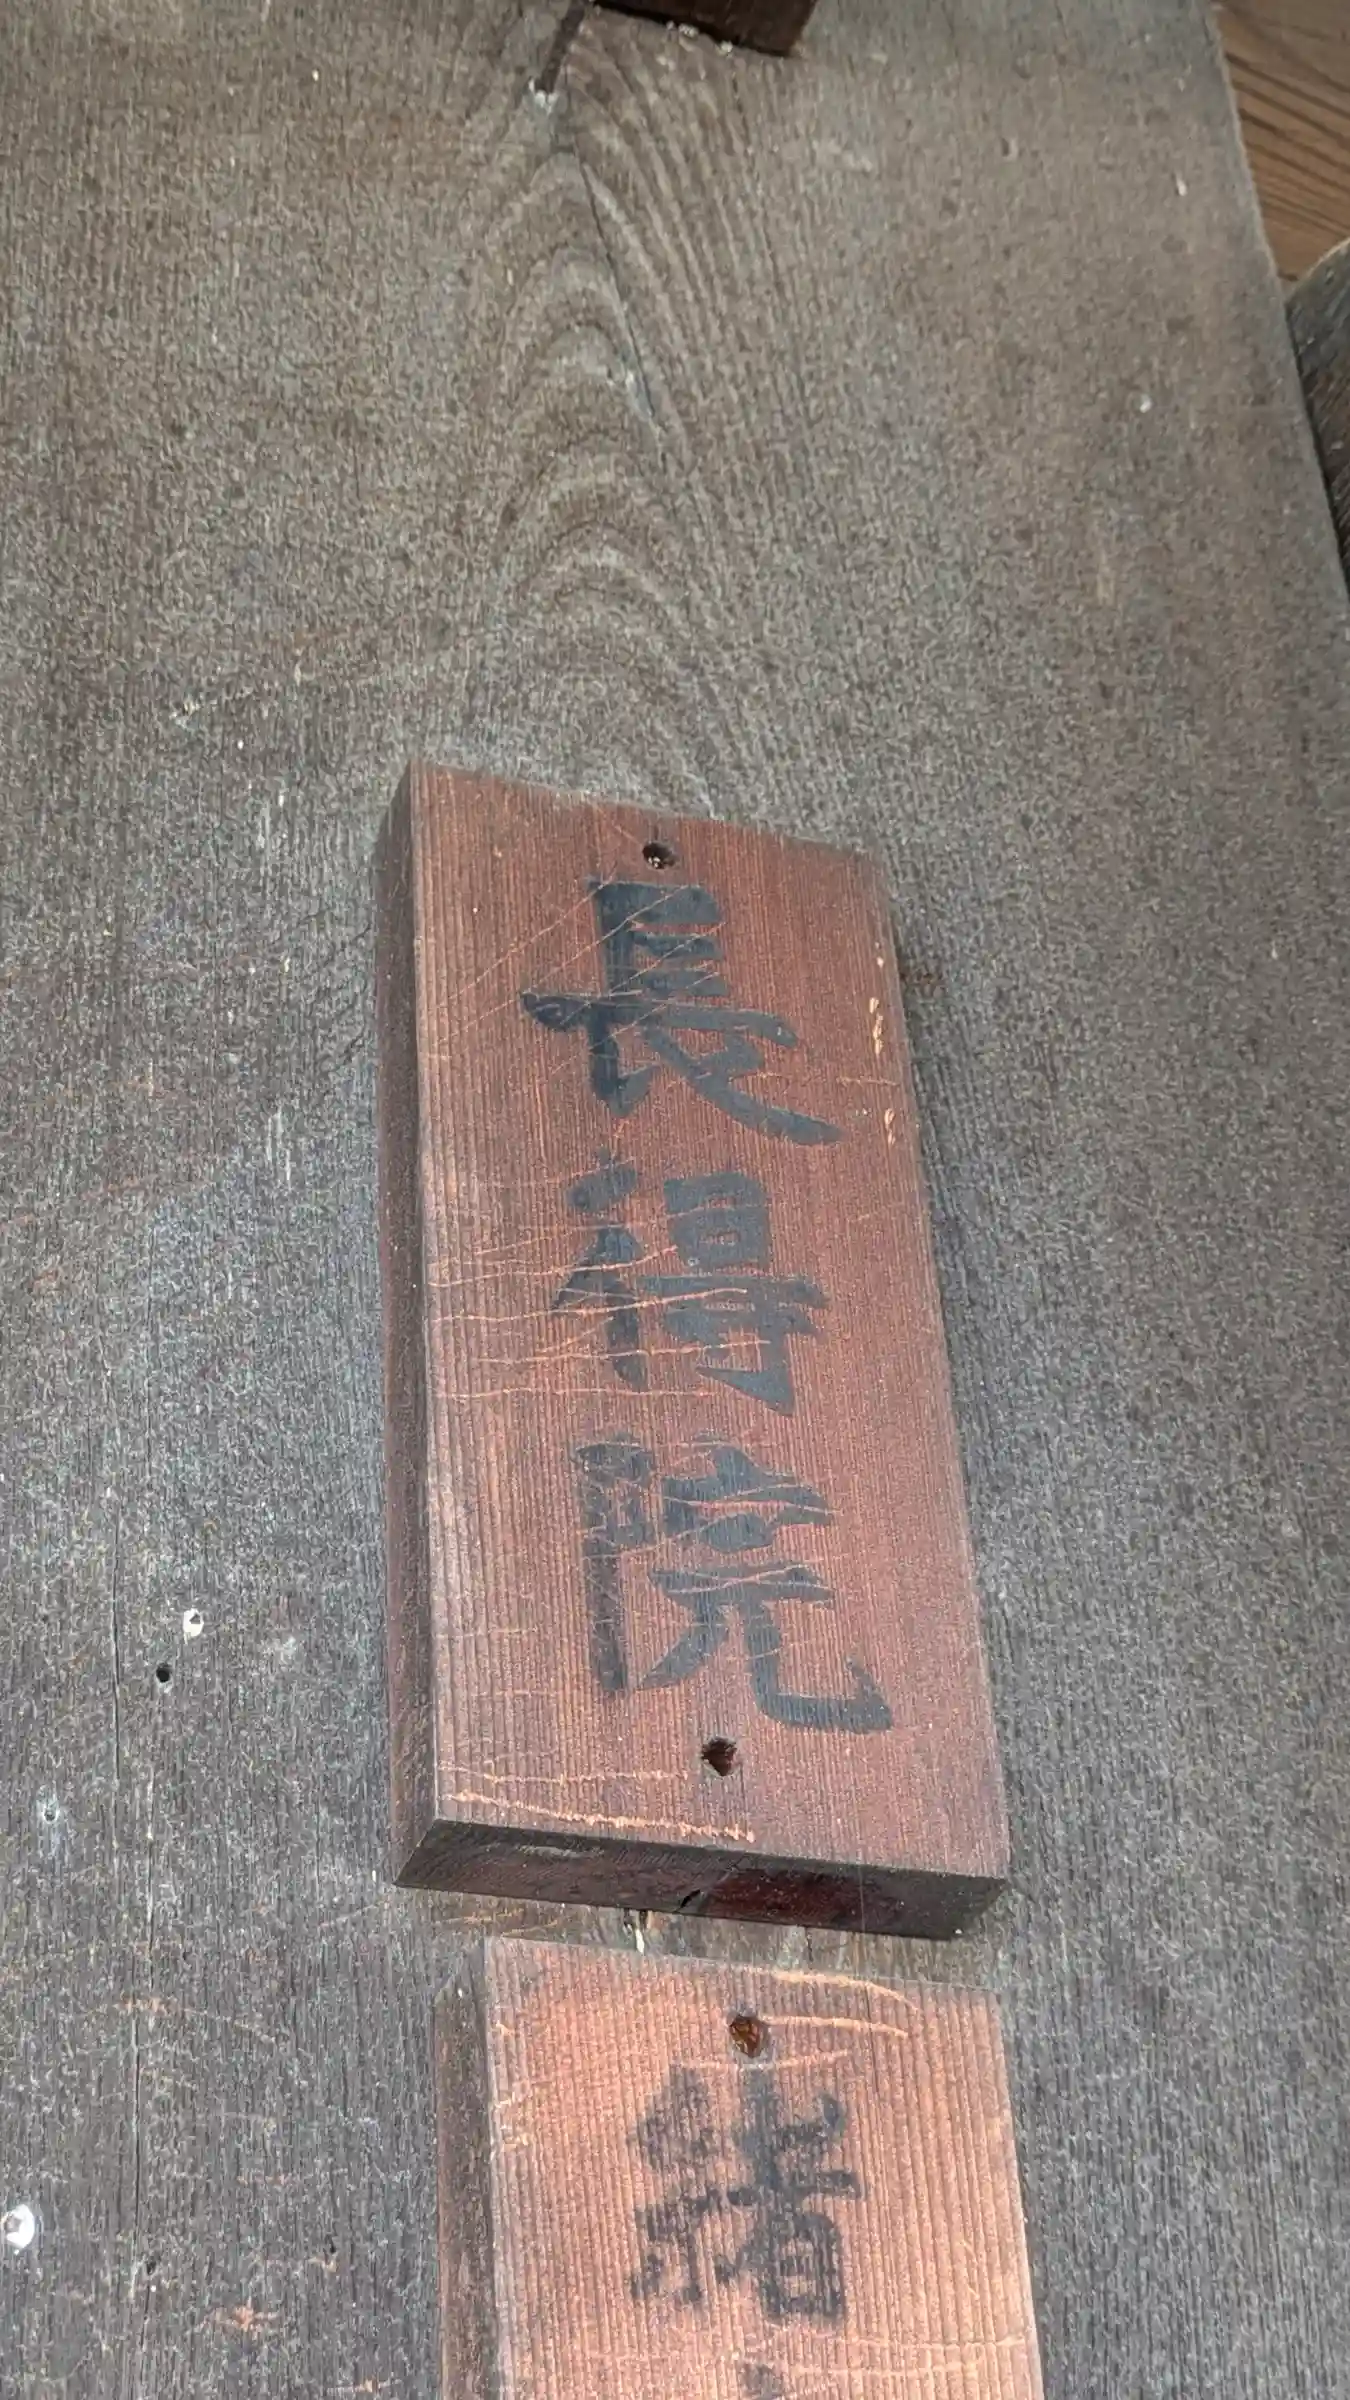 長得院
緒